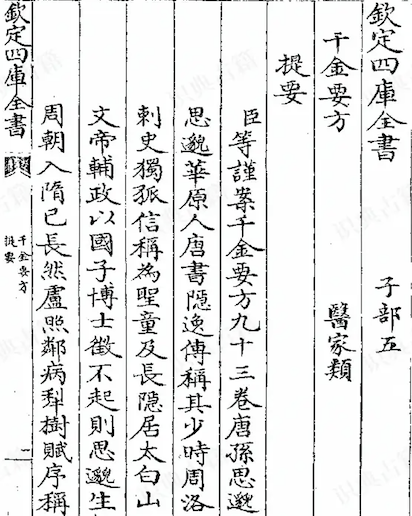 欽定四庫全書 子部五
千金要方 醫家類
提要
臣等謹案千金要方九十三卷唐孫思邈
思邈華原人唐書隱逸傳稱其少時周洛
刺史獨孤信稱為聖童及長隱居太白山
文帝輔政以國子博士徵不起則思邈生
周朝入隋已長然盧照鄰病梨樹賦序稱
欽定四庫全書
千金要方
提要
一